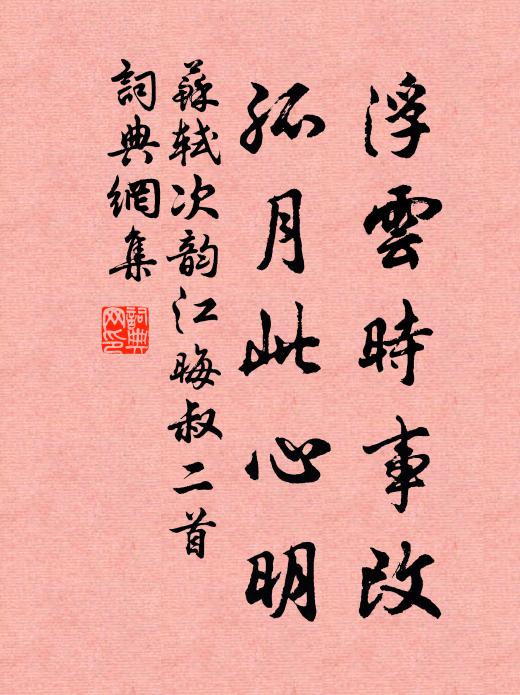 浮雲時事改
孤月此心明
蘇軾次韵江晦叔二首
詞典網集
詞典网印